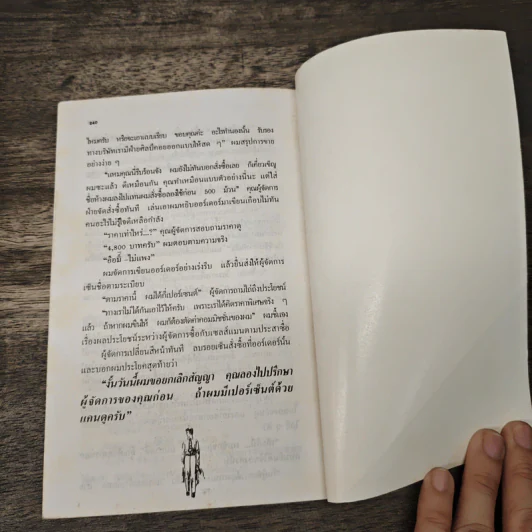 ไหมครับ หรือจะเอาแบบเรียบ ขอบคุณค่ะ อะไรทำนองนั้น รับรอง
ทางบริษัทเรามีฝ่ายศิลป์คอยออกแบบให้สด ๆ" ผมสรุปการขาย
อย่างง่าย ๆ
"แหมคุณนี่รีบร้อนจัง ผมยังไม่ทันบอกสั่งซื้อเลย ก็เคี่ยวเข็ญ
ผมซะแล้ว ดีเหมือนกัน คุณทำเหมือนแบบตัวอย่างนี่นะ แต่ใส่
ชื่อห้างผมลงไปแทนผมสั่งซื้อลองใช้ก่อน 500 ม้วน" คุณผู้จัดการ
ฝ่ายจัดสั่งซื้อทันที เล่นเอาผมหยิบออร์เดอร์มาเขียนเกือบไม่ทัน
คนอะไรไม่รู้ใจดีเหลือกำลัง
"ราคาเท่าไหร่...?" คุณผู้จัดการสอบถามราคาดู
"4,800 บาทครับ" ผมตอบตามความจริง
"อือม์ -ไม่แพง"
ผมจัดการเขียนออร์เดอร์อย่างเร่งรีบ แล้วยื่นส่งให้ผู้จัดการ
เซ็นชื่อตามระเบียบ
"ตามราคานี้ ผมได้กี่เปอร์เซนต์" ผู้จัดการถามไถ่ถึงประโยชน์
"ทางเราไม่ได้กันเอาไว้ให้ครับ เพราะเราได้คิดราคาพิเศษจริง ๆ
แล้ว ถ้าหากผมขืนให้ ผมก็ต้องตัดค่าคอมมิชชั่นของผม" ผมชี้แจง
เรื่องผลประโยชน์ระหว่างผู้จัดการซื้อกับเซลส์แมนตามประสาซื่อ
ผู้จัดการเปลี่ยนสีหน้าทันที ลบรอยเซ็นสั่งซื้อที่ออร์เดอร์นั้น
และบอกผมประโยคสุดท้ายว่า
"งั้นวันนี้ผมขอยกเลิกสัญญา คุณลองไปปรึกษา
ผู้จัดการของคุณก่อน ถ้าผมมีเปอร์เซ็นต์ด้วย
แคนดูครับ"